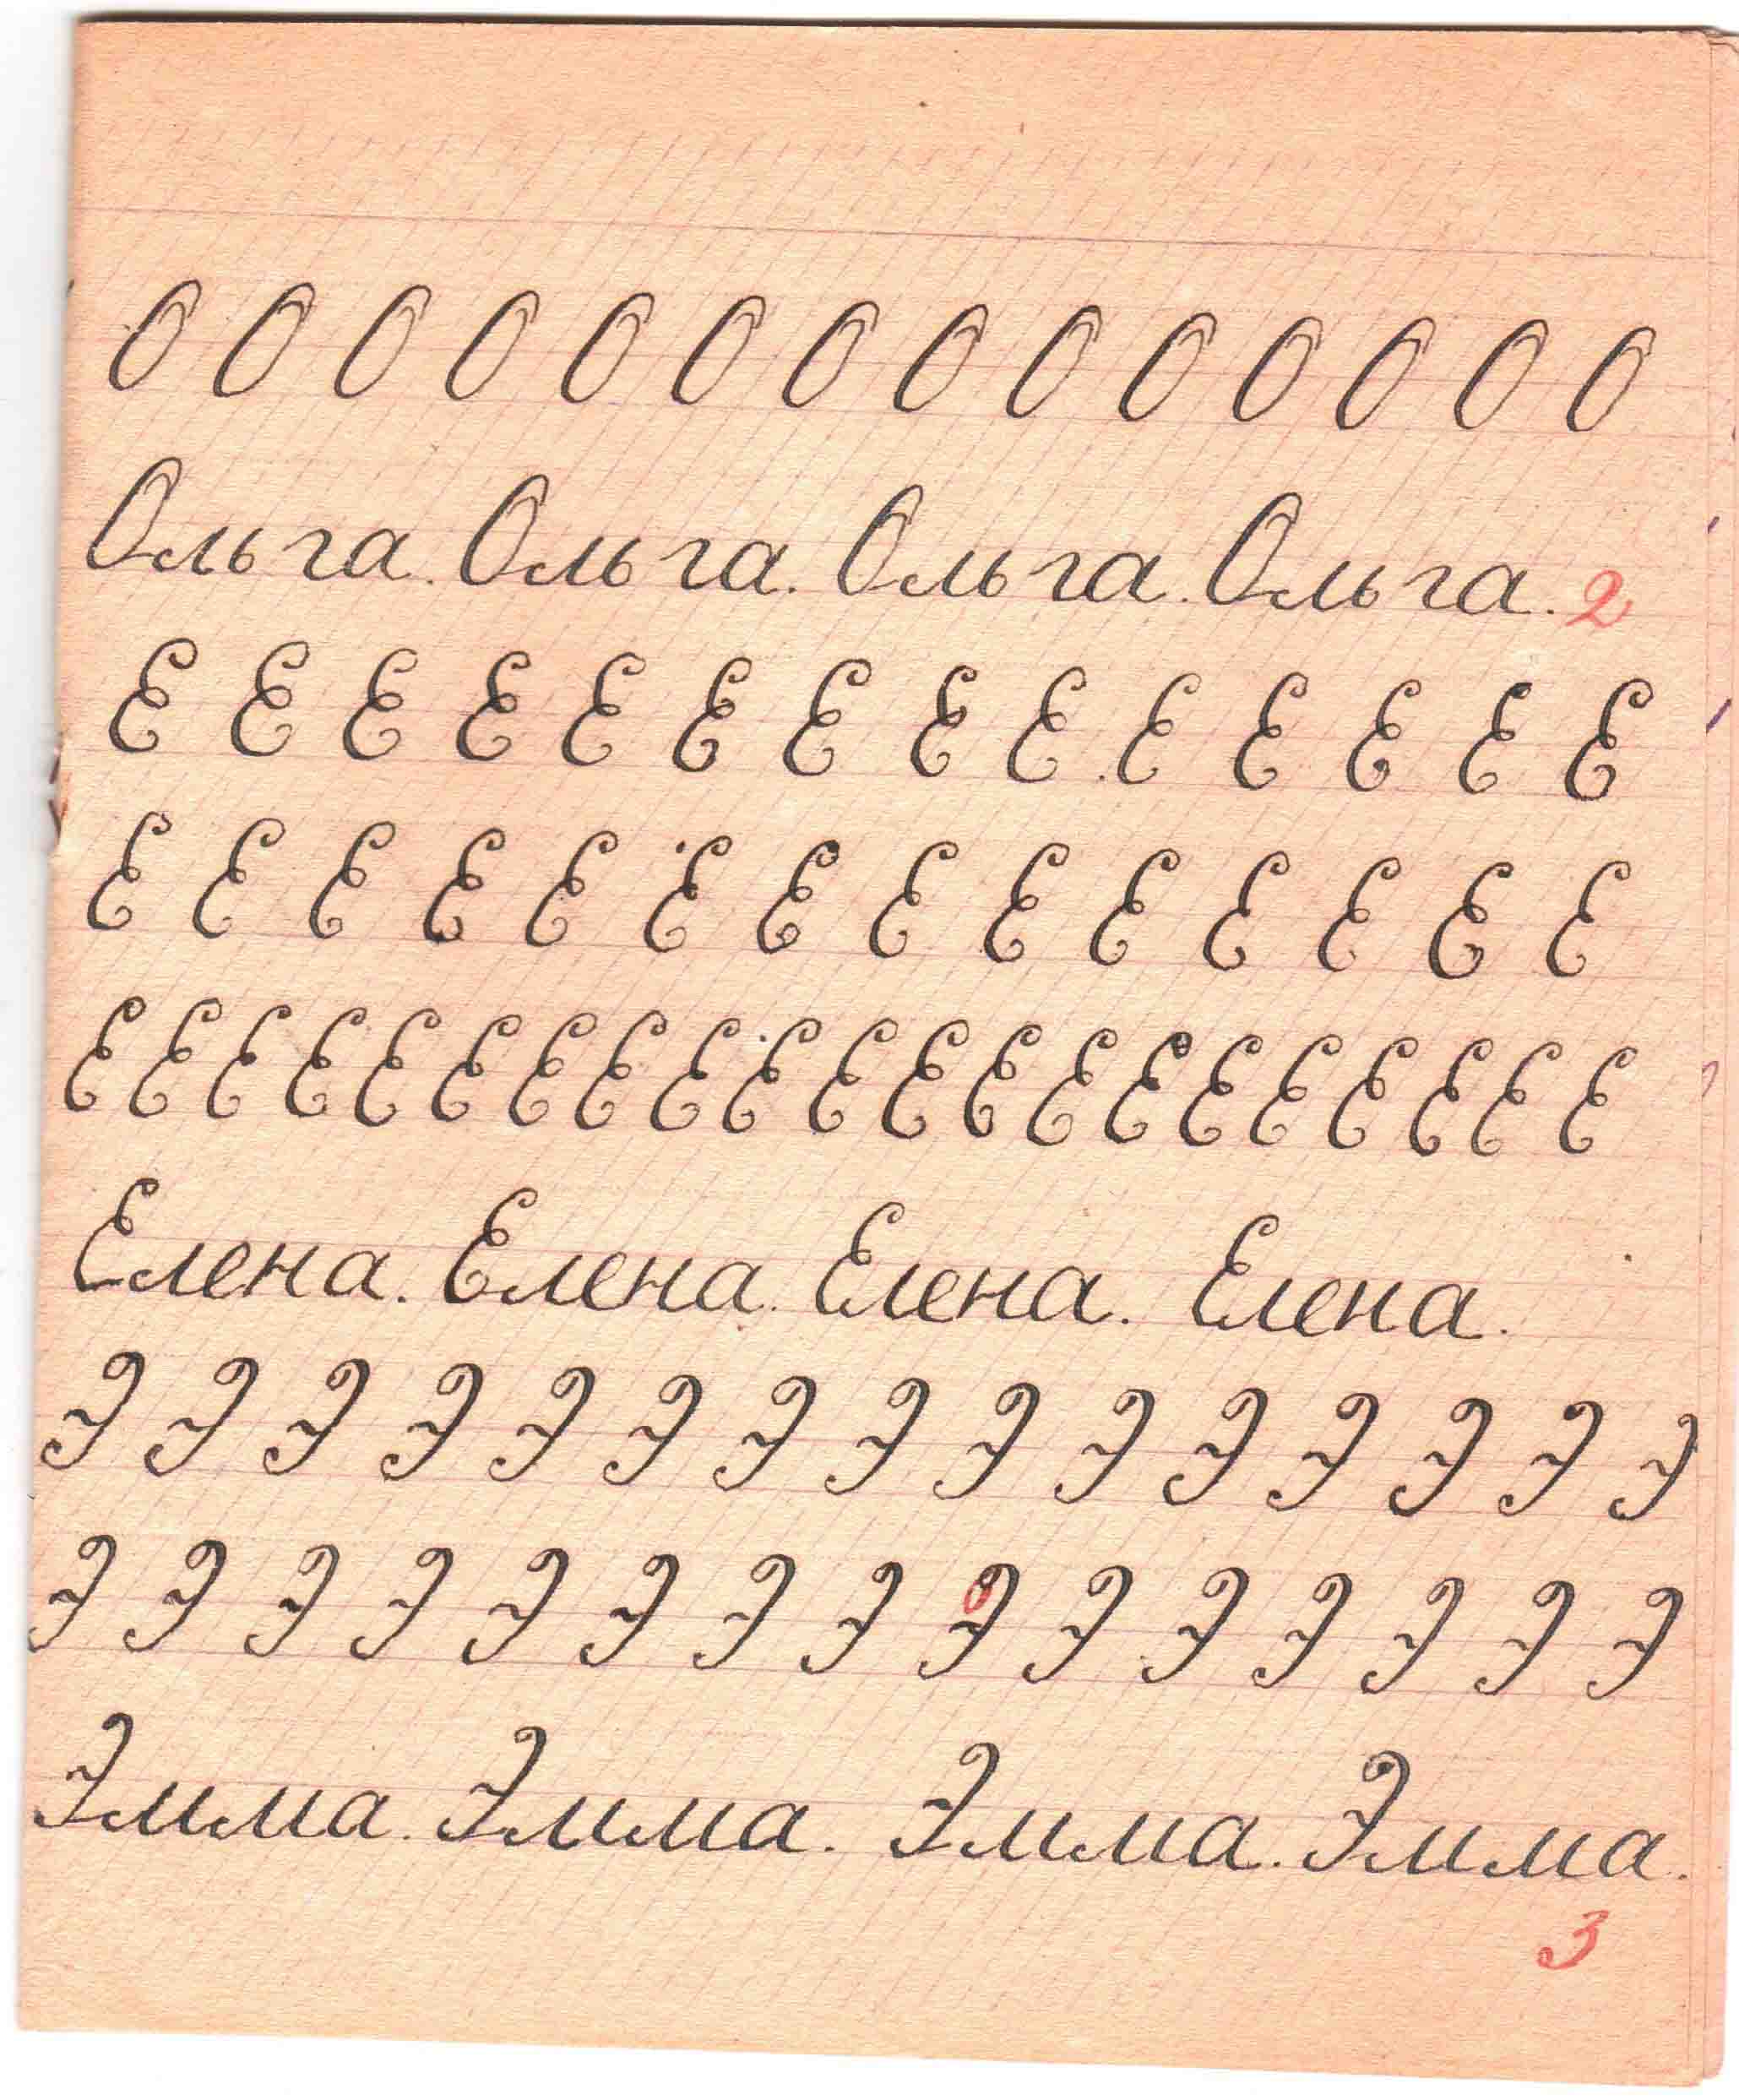 О О О О О О О О О О О О О О
Ольга. Ольга. Ольга. Ольга. 2
Е Е Е Е Е Е Е Е Е Е Е Е Е Е
Е Е Е Е Е Е Е Е Е Е Е Е Е Е
Е Е Е Е Е Е Е Е Е Е Е Е Е Е Е Е Е Е Е Е Е
Елена. Елена. Елена. Елена.
Э Э Э Э Э Э Э Э Э Э Э Э Э Э Э
Э Э Э Э Э Э Э Э Э Э Э Э Э Э Э
Эмма. Эмма. Эмма. Эмма.
3